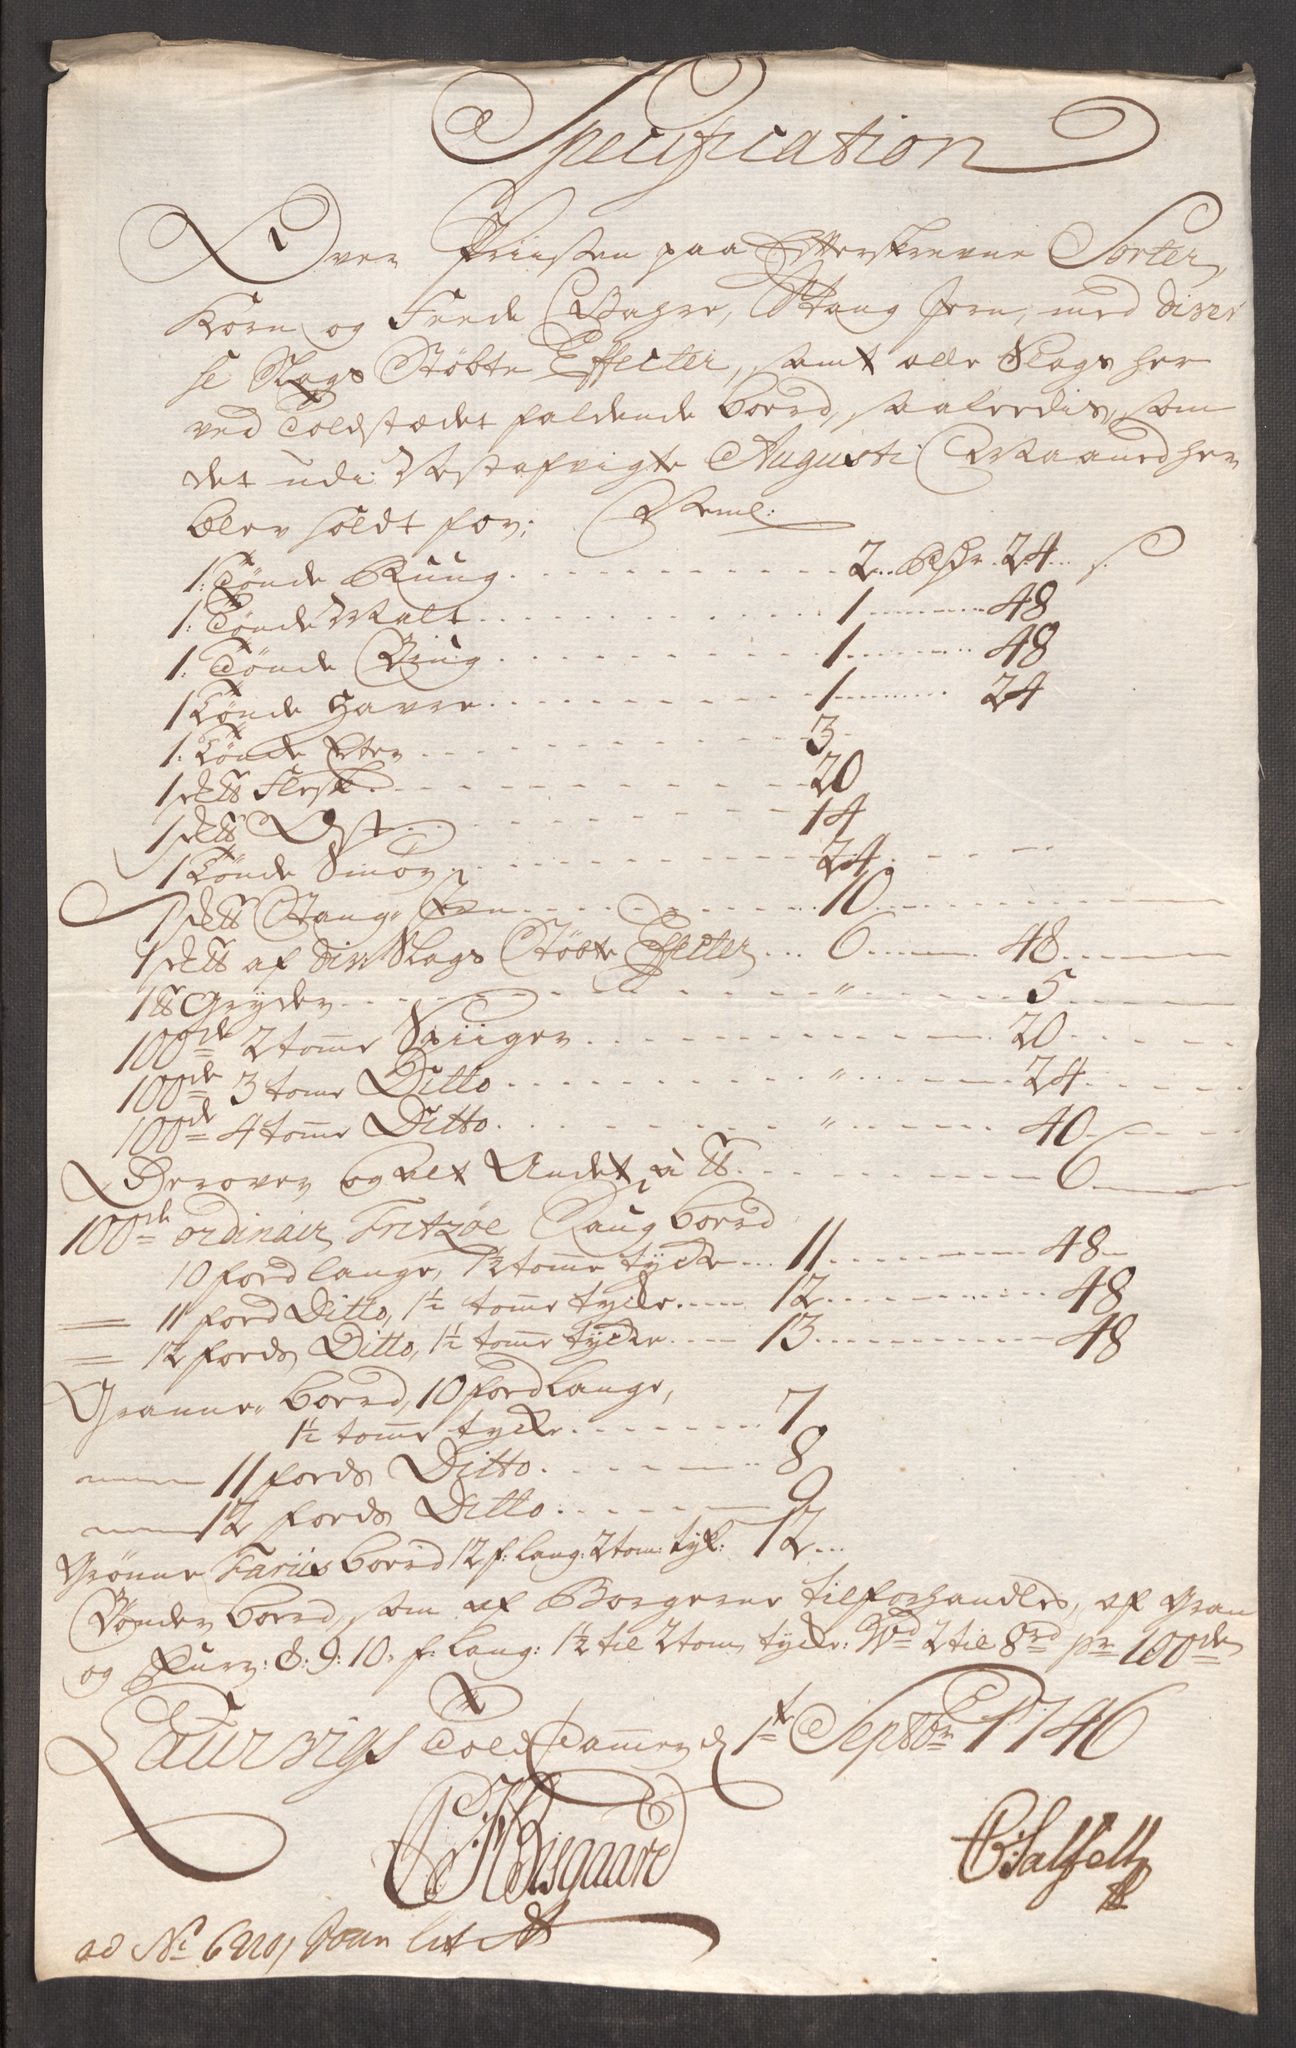 Specification
Over Priisen paa Efterskrevne Sorter,
Korn og Feede Wahre, Stang Jern, med diver
se Slags Støbte Effecter, samt alle Slags her
ved Toldstædet faldende bord, saaledis, som
det udi Nestafvigte Augusti Maaned her
blev holdt for; Neml:
1: Tønde Rug 2 Rdr. 24 s.
1: Tønde Malt 1 48
1: Tønde Biug 1 48
1 Tønde Havre 1 24
1: Tønde Erter 3
1 sk℔ Flesk 20
1 sk℔ Ost 14
1 Tønde Smør 24
1 sk℔ Stang Jern 10
1 sk℔ af div Slags Støbte Effecter 6 48
1 ℔ Gryder " 5
100de 2 tomme Spiiger 20
100de 3 tome Ditto " 24
100de 4 tomme Ditto " 40
Derover og alt Andet, à ℔ 6
100de ordinair Fritzøe Saug bord
10 ford lange, 1½ tomme tycke 11 48
11 ford Ditto, 1½ tomme tycke 12 48
12 fords Ditto, 1½ tomme tycke 13 48
Granne bord, 10 ford lange,
1½ tomme tycke 7
11 fords Ditto 8
12 fords Ditto 9
Grønne bord 12 f: lang: 2 tom: tyk: 12
Bønder bord, som af Borgerne tilforhandles, af Gran
og Fure: 8: 9: 10: f: lang: 1½ til 2 tom tycke: 2 til 8 rd pr 100de
Laurvigs Told Cammer d 1te Septbr 1746
Risgaard
C Salfelt
ad No